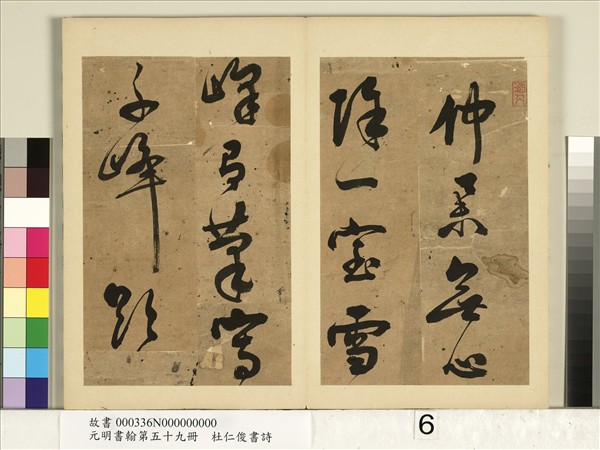 仲舉無心
除一室雪
峰筆寫
峰
6
故書 000336N000000000
元明書翰第五十九冊 杜仁俊書詩